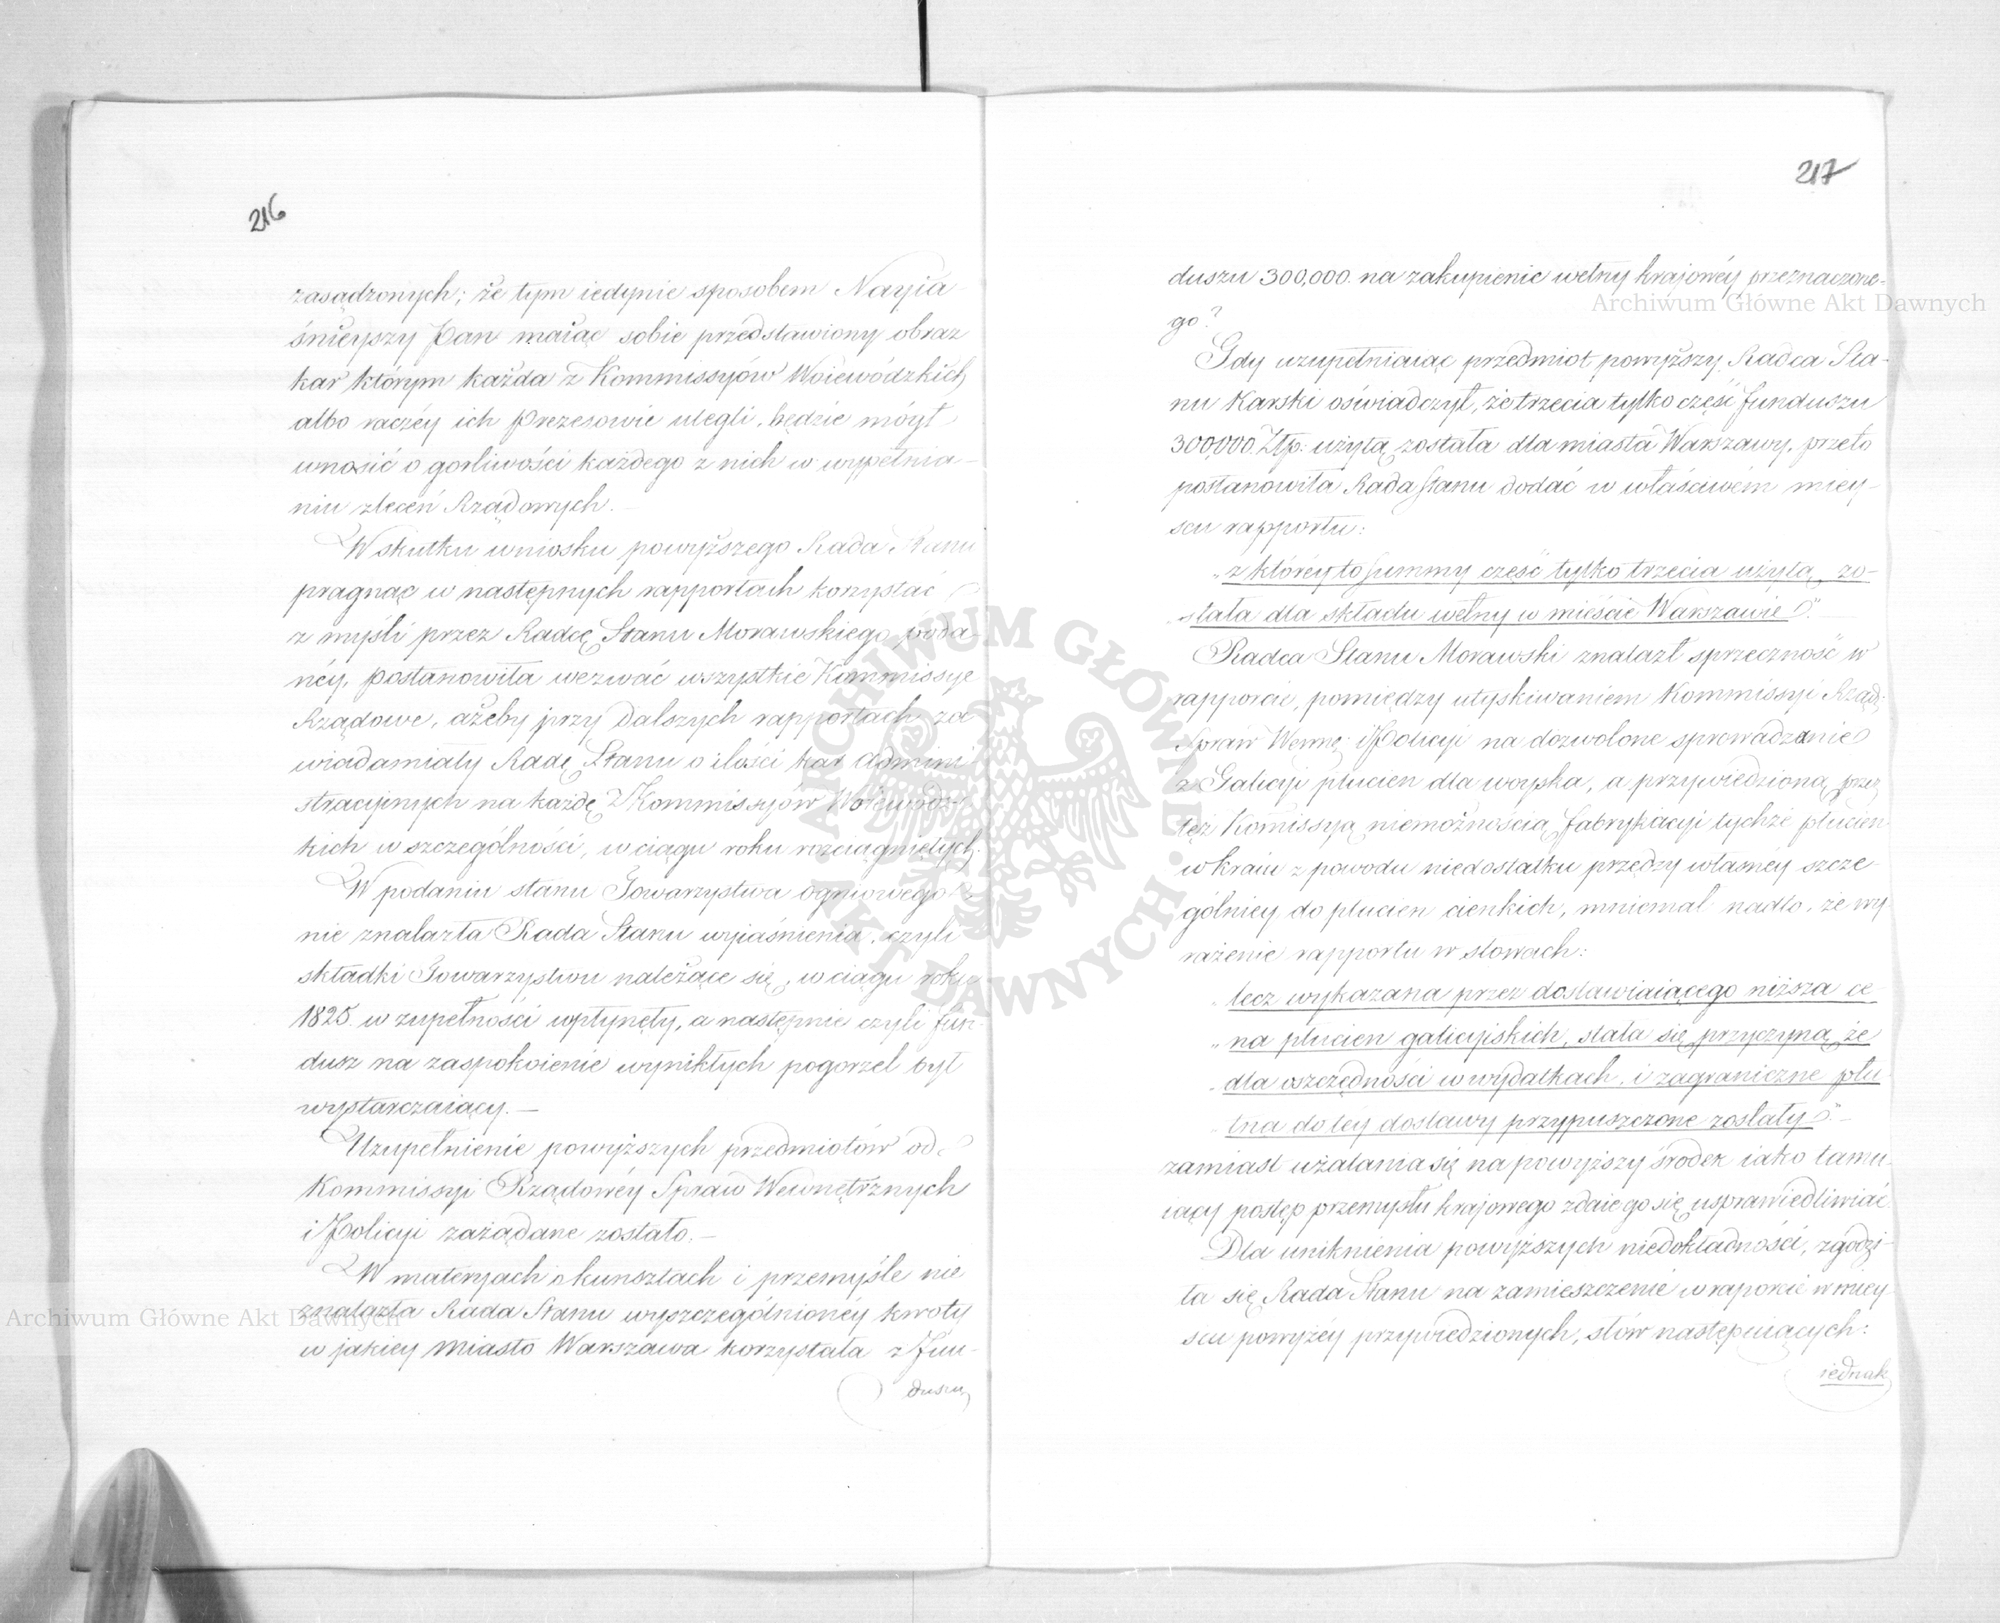 216
zasądzonych; że tym iedynie sposobem Nayia-
śnieyszy Pan maiąc sobie przedstawiony obraz
kar którym każda z Kommissyów Woiewódzkich
albo raczéy ich Prezesowie ulegli, będzie mógł
wnosić o gorliwości każdego z nich w wypełnia-
niu zleceń Rządowych.—
W skutku wniosku powyższego Rada Stanu
pragnąc w następnych rapportach korzystać
z myśli przez Radcę Stanu Morawskiego poda-
néy, postanowiła wezwać wszystkie Kommissye
Rządowe, ażeby przy dalszych rapportach za
wiadamiały Radę Stanu o ilości kar admini
stracyjnych na każdę z Kommissyów Woiewódz-
kich w szczególności, w ciągu roku rozciągniętych.
W podaniu stanu Towarzystwa ogniowego
nie znalazła Rada Stanu wyjaśnienia, czyli
składki Towarzystwu należące się, w ciągu roku
1825. w zupełności wpłynęły, a następnie czyli fun-
dusz na zaspokoienie wynikłych pogorzel był
wystarczaiący.—
Uzupełnienie powyższych przedmiotów od
Kommissyi Rządowéy Spraw Wewnętrznych
i Policyi zażądane zostało.—
W materyach o kunsztach i przemyśle nie
znalazła Rada Stanu wyszczególnionéy kwoty
w jakiey Miasto Warszawa korzystała z Fun-
duszu
217
duszu 300,000. na zakupienie wełny krajowéy przeznaczone-
go?
Gdy uzupełniaiąc przedmiot powyższy Radca Sta-
nu Karski oświadczył, że trzecia tylko część funduszu
300,000. Złp: użytą została dla miasta Warszawy, przeto
postanowiła Rada Stanu dodać w właściwém miey-
scu rapportu:
„z któréy to summy część tylko trzecia użytą zo-
„stała dla składu wełny w mieście Warszawie".—
Radca Stanu Morawski znalazł sprzeczność w
rapporcie, pomiędzy utyskiwaniem Kommissyi Rząd:
Spraw Wewnę: i Policyi na dozwolone sprowadzanie
z Galicyi płucien dla woyska, a przywiedzioną przez
też Komissyą niemożnością fabrykacyi tychże płucien
w kraiu z powodu niedostatku przędzy własnéy szcze-
gólniey do płucien cienkich, mniemał nadto, że wy
rażenie rapportu w słowach:
„lecz wykazana przez dostawiaiącego niższa ce-
„na płucien galicyiskich, stała się przyczyną że
„dla oszczędności w wydatkach, i zagraniczne płu-
„tna do téy dostawy przypuszczone zostały".—
zamiast użalania się na powyższy środek iako tamu-
iący postęp przemysłu krajowego zdaie go się usprawiedliwiać.
Dla uniknienia powyższych niedokładności, zgodzi-
ła się Rada Stanu na zamieszczenie w raporcie w miey
scu powyżéy przywiedzionych, słów następuiących:
iednak
Archiwum Główne Akt Dawnych
Archiwum Główne Akt Dawnych
ARCHIWUM GŁÓWNE AKT DAWNYCH